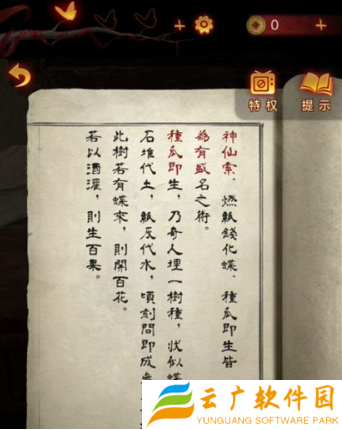 0
特权
提示
神仙索、燃紙錢化蝶、種瓜即生皆
為有盛名之術。
種瓜即生，乃奇人埋一樹種，狀似蝶
石堆代土，紙灰代水，頃刻間即成
此樹若有蝶來，則開百花。
若以酒灌，則生百果。
云广软件园
YUNGUANG SOFTWARE PARK